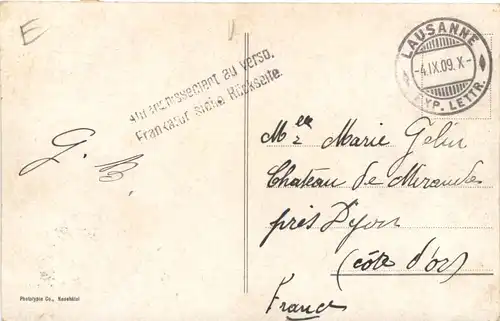 E
LAUSANNE
-4.IX.09.X-
EXP. LETTR.
Affranchissement au verso.
Frankatur siehe Rückseite.
G. B.
Melle Marie Gelin
Chateau de Mirande
près Dijon
(côte d'or)
France
Phototypie Co., Neuchâtel